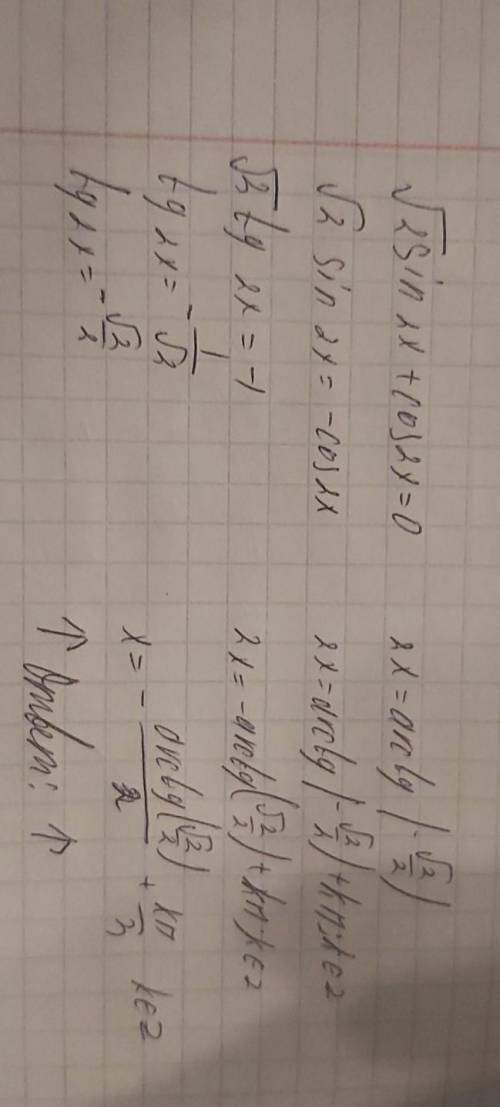 √2 sin 2x + cos 2x = 0
√2 sin 2x = -cos 2x
√2 tg 2x = -1
tg 2x = -1/√2
tg 2x = -√2/2
2x = arctg (-√2/2)
2x = arctg (-√2/2) + kπ; k∈Z
2x = -arctg (√2/2) + kπ, k∈Z
x = - arctg(√2/2)/2 + kπ/2 k∈Z
↑ Ответ: ↑